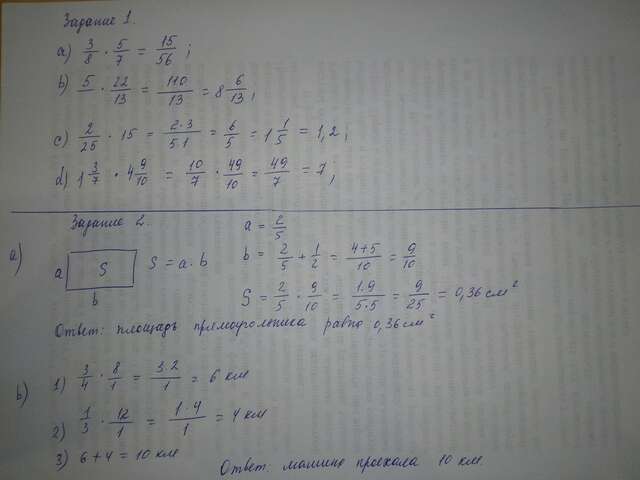 Задание 1.
a) 3/8 · 5/7 = 15/56 ;
b) 5 · 22/13 = 110/13 = 8 6/13 ;
c) 2/25 · 15 = 2·3/5·1 = 6/5 = 1 1/5 = 1,2 ;
d) 1 3/7 · 4 9/10 = 10/7 · 49/10 = 49/7 = 7 ;
Задание 2.
a)
a S b S = a · b
a = 2/5
b = 2/5 + 1/2 = 4+5/10 = 9/10
S = 2/5 · 9/10 = 1·9/5·5 = 9/25 = 0,36 см²
Ответ: площадь прямоугольника равна 0,36 см²
b)
1) 3/4 · 8/1 = 3·2/1 = 6 км
2) 1/3 · 12/1 = 1·4/1 = 4 км
3) 6 + 4 = 10 км
Ответ: машина проехала 10 км.